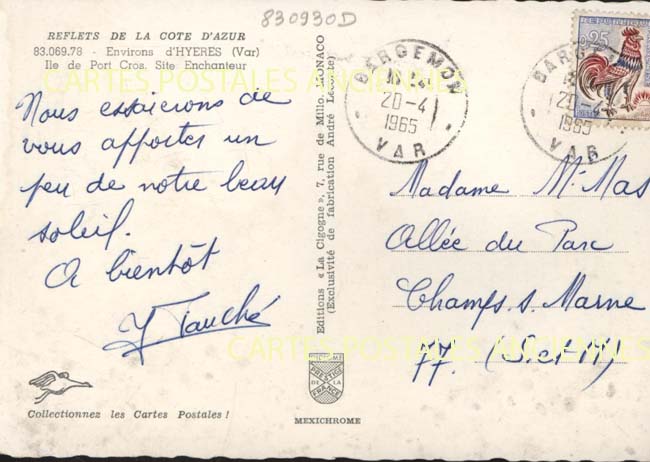 830930D
REFLETS DE LA COTE D'AZUR
83.069.78 - Environs d'HYERES (Var)
Ile de Port Cros. Site Enchanteur
CARTES POSTALES ANCIENNES
Nous essaierons de
vous apporter un
peu de notre beau
soleil.
A bientôt
Y Tauché
Collectionnez les Cartes Postales !
Editions « La Cigogne », 7, rue de Millo, MONACO
(Exclusivité de fabrication André Leconte)
PRESTIGE
DE LA
FRANCE
MEXICHROME
BARGEMON
20-4
1965
VAR
BARGEMON
20-4
1965
VAR
0,25
Madame M. Mas
Allée du Parc
Champs. s. Marne
77. (S. et M)
CARTES POSTALES ANCIENNES